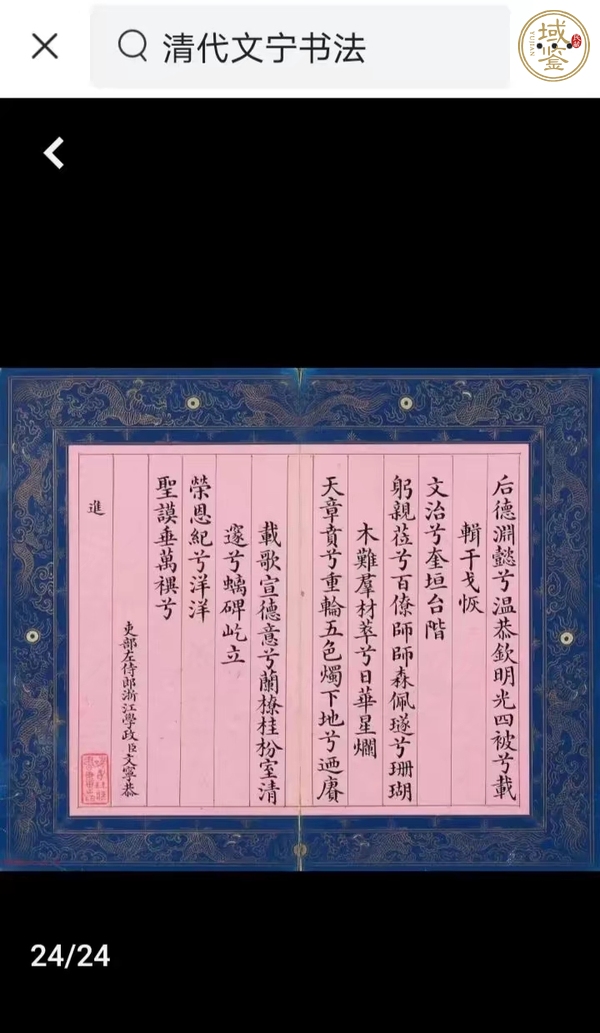 清代文宁书法
域鉴
YUJIAN
后德淵懿兮温恭欽明光四被兮載
輯干戈恢
文治兮奎垣台階
躬親莅兮百僚師師森佩璲兮珊瑚
木難羣材萃兮日華星爛
天章賁兮重輪五色燭下地兮迺賡
載歌宣德意兮蘭橑桂枌室清
邃兮螭碑屹立
榮恩紀兮洋洋
聖謨垂萬禩兮
吏部左侍郎浙江學政臣文寧恭
進
24/24